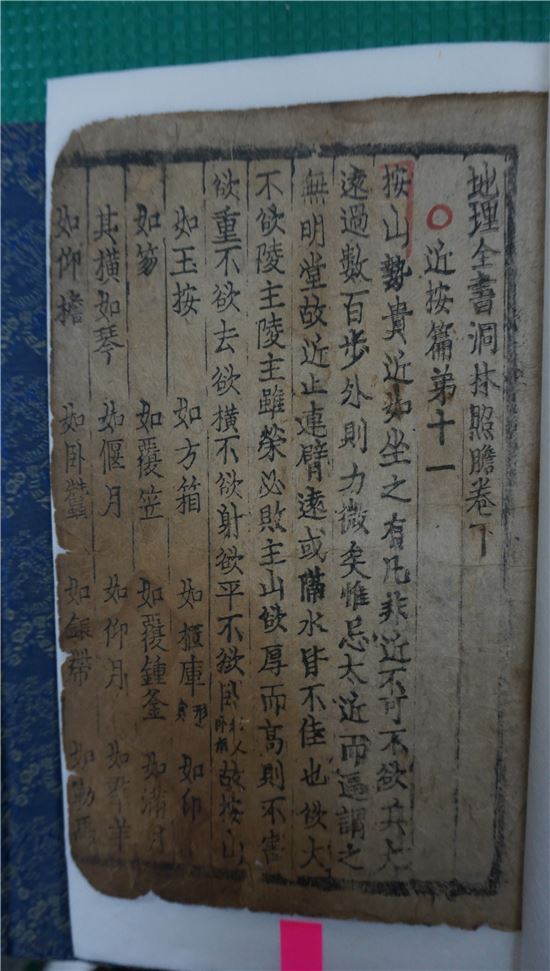 地理全書洞林照膽卷下
近按篇第十一
按山勢貴近如坐之有几非近不可不欲其太
遠過數百步外則力微矣惟忌太近而逼謂之
無明堂故近止連臂遠或隔水皆不佳也欲大
不欲陵主陵主雖榮必敗主山欲厚而高則不害
欲重不欲去欲橫不欲射欲平不欲臥故按山
如玉按 如方箱 如櫃庫 如印
如笏 如覆笠 如覆鍾釜 如滿月
其橫如琴 如偃月 如仰月 如羣羊
如仰檐 如臥蠶 如銀帶